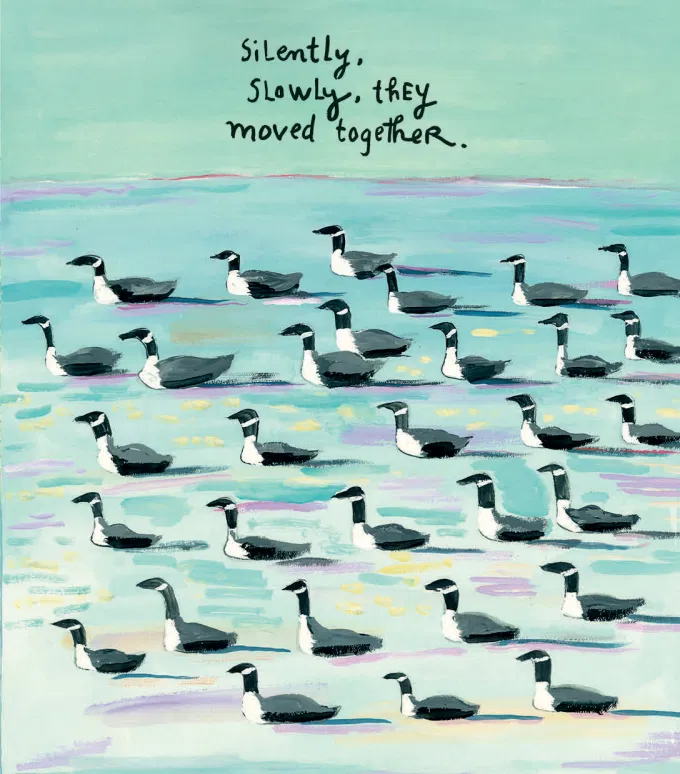 Silently,
Slowly, they
moved together.